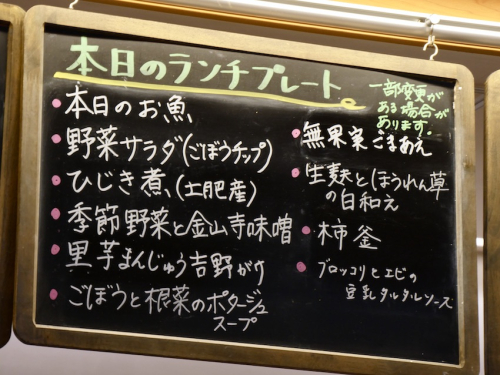 本日のランチプレート
一部変更が
ある場合が
あります。
本日のお魚
野菜サラダ(ごぼうチップ)
ひじき煮(土肥産)
季節野菜と金山寺味噌
里芋まんじゅう吉野がけ
ごぼうと根菜のポタージュ
スープ
無果実ごまあえ
生麩とほうれん草
の白和え
柿釜
ブロッコリとエビの
豆乳タルタルソース